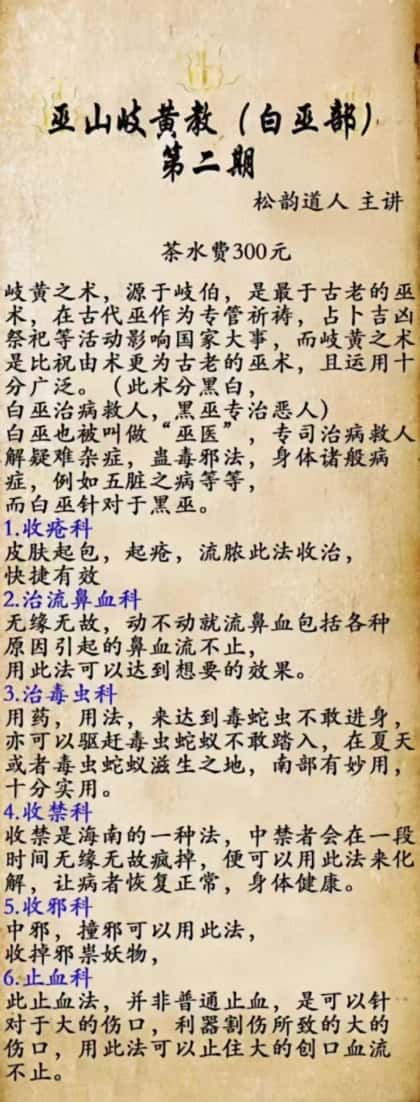 巫山岐黄教（白巫部）
第二期
松韵道人 主讲
茶水费300元
岐黄之术，源于岐伯，是最于古老的巫
术，在古代巫作为专管祈祷，占卜吉凶
祭祀等活动影响国家大事，而岐黄之术
是比祝由术更为古老的巫术，且运用十
分广泛。（此术分黑白，
白巫治病救人，黑巫专治恶人）
白巫也被叫做“巫医”，专司治病救人
解疑难杂症，蛊毒邪法，身体诸般病
症，例如五脏之病等等，
而白巫针对于黑巫。
1.收疮科
皮肤起包，起疮，流脓此法收治，
快捷有效
2.治流鼻血科
无缘无故，动不动就流鼻血包括各种
原因引起的鼻血流不止，
用此法可以达到想要的效果。
3.治毒虫科
用药，用法，来达到毒蛇虫不敢进身，
亦可以驱赶毒虫蛇蚁不敢踏入，在夏天
或者毒虫蛇蚁滋生之地，南部有妙用，
十分实用。
4.收禁科
收禁是海南的一种法，中禁者会在一段
时间无缘无故疯掉，便可以用此法来化
解，让病者恢复正常，身体健康。
5.收邪科
中邪，撞邪可以用此法，
收掉邪祟妖物，
6.止血科
此止血法，并非普通止血，是可以针
对于大的伤口，利器割伤所致的大的
伤口，用此法可以止住大的创口血流
不止。